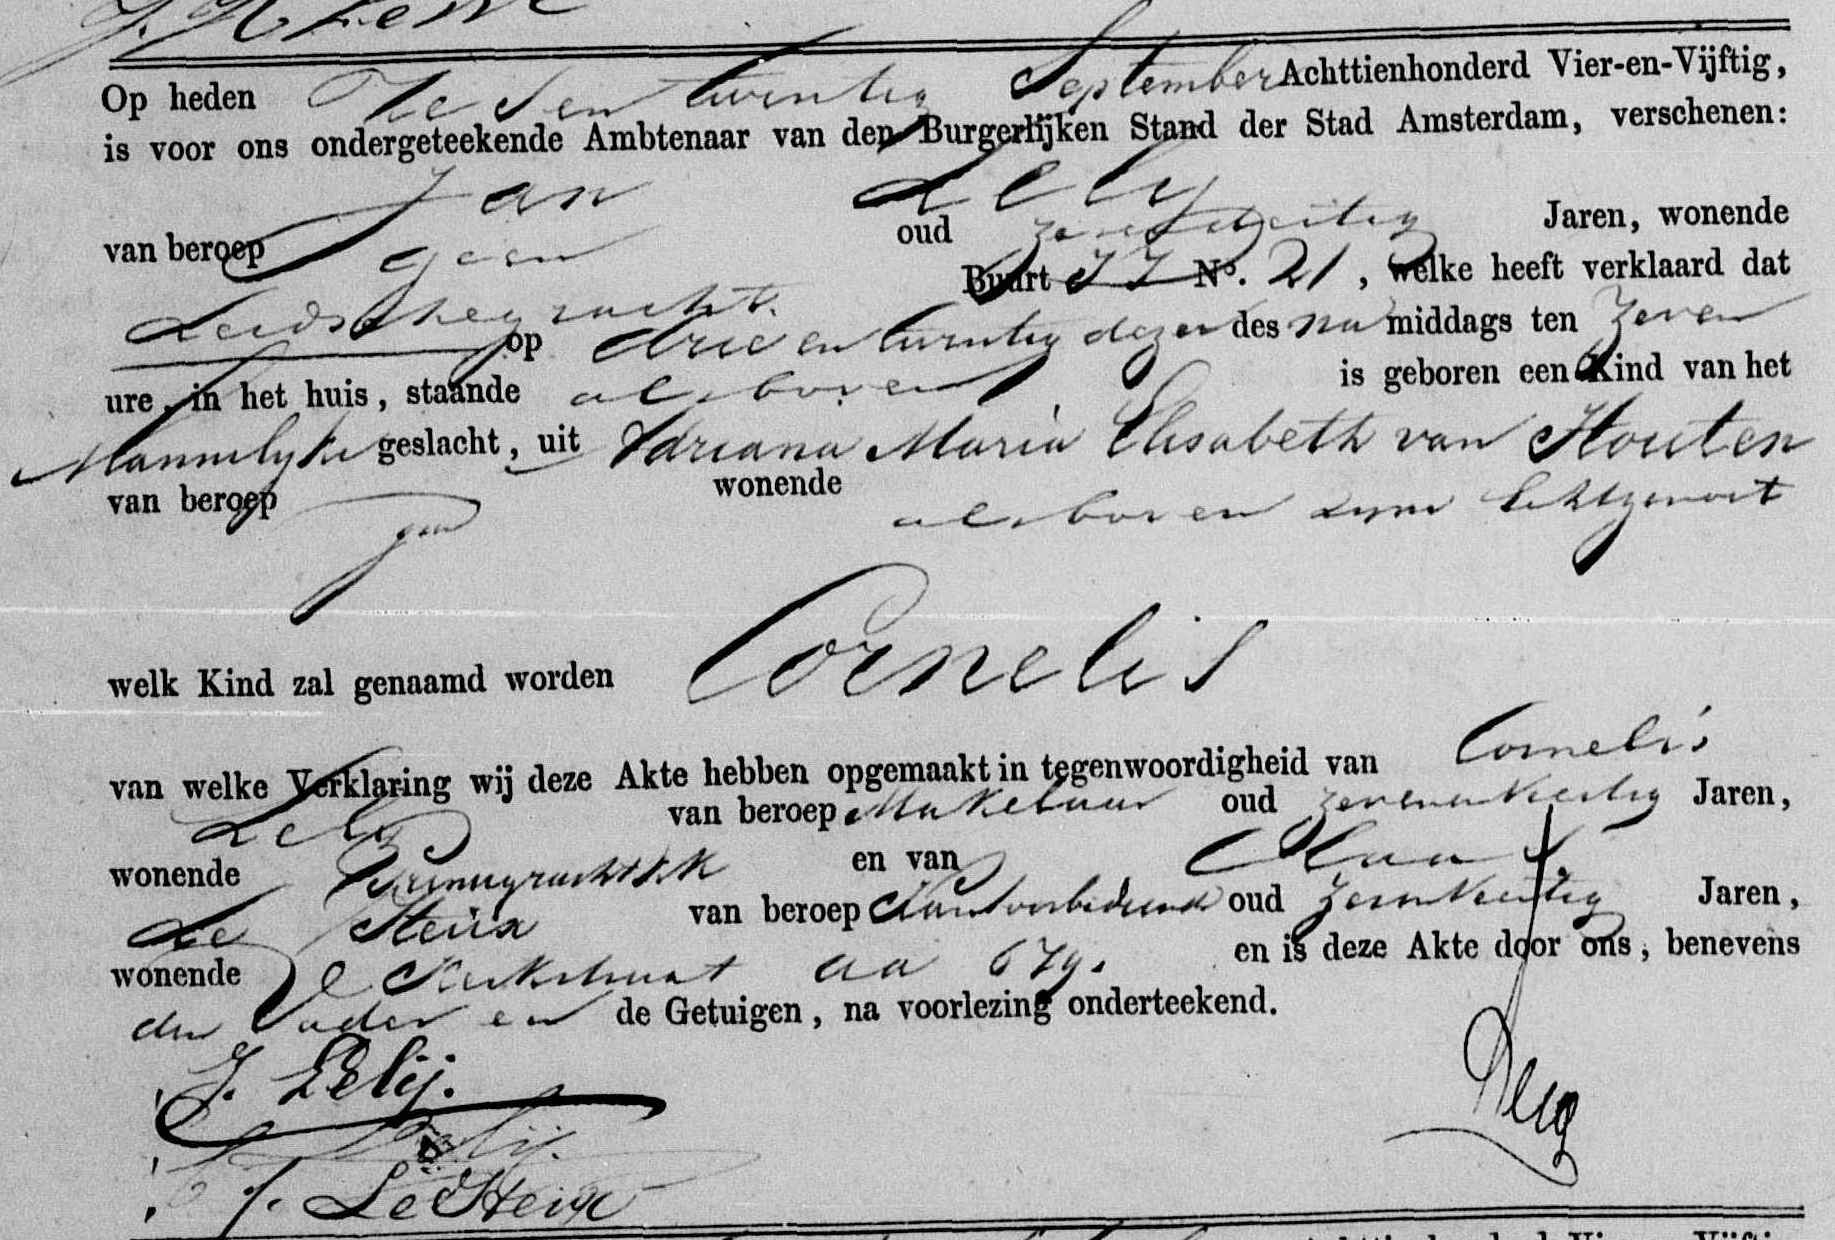 Op heden Zes en twintig September Achttienhonderd Vier-en-Vijftig,
is voor ons ondergeteekende Ambtenaar van den Burgerlijken Stand der Stad Amsterdam, verschenen:
Jan Lely
van beroep geen oud Jaren, wonende
Leidschegracht. Buurt JJ No. 21, welke heeft verklaard dat
op drie en twintig dezer des na middags ten Zeven
ure, in het huis, staande als boven is geboren een Kind van het
Mannelyke geslacht, uit Adriana Maria Elisabeth van Houten
van beroep geen wonende als boven zyne Echtgenoot
welk Kind zal genaamd worden Cornelis
van welke Verklaring wij deze Akte hebben opgemaakt in tegenwoordigheid van Cornelis
Lely van beroep Makelaar oud zevenenveertig Jaren,
wonende en van
Le Heux van beroep Kantoorbediende oud Jaren,
wonende Kerkstraat aa 679. en is deze Akte door ons, benevens
den Vader en de Getuigen, na voorlezing onderteekend.
J. Lelij.
C Lelij.
Le Heux